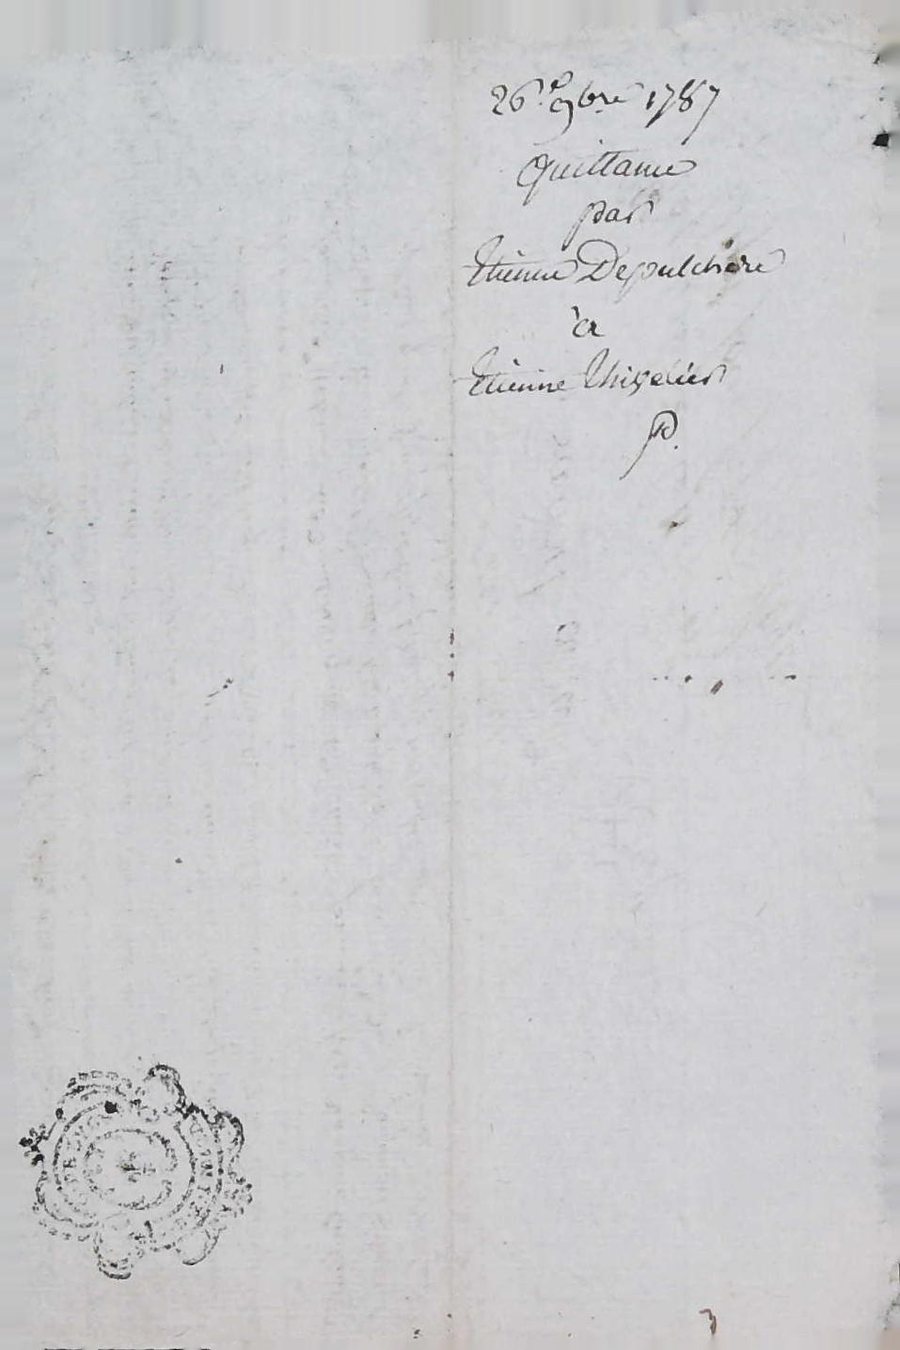 26. 9bre 1787
Quittance
par
Etienne Depulchere
à
Etienne Thivelier
P.